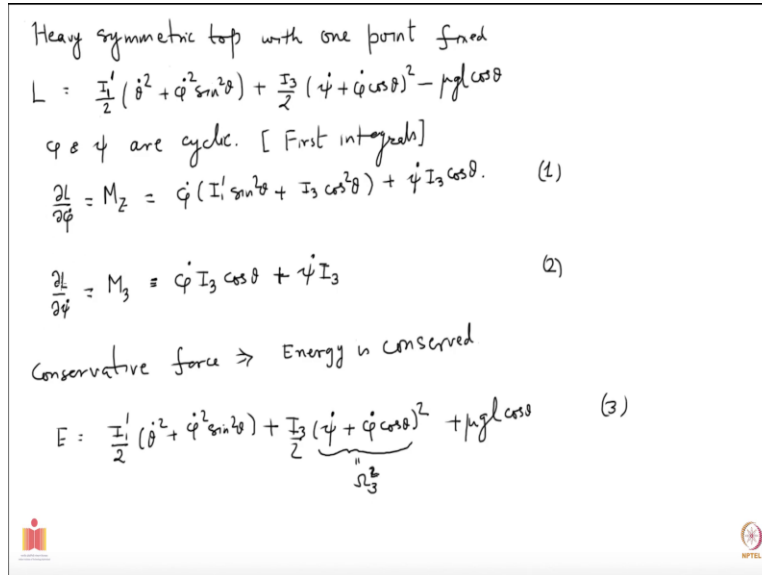 Heavy symmetric top with one point fixed
L : I₁'/2 (θ̇² + φ̇² sin²θ) + I₃/2 (ψ̇ + φ̇ cosθ)² − μgl cosθ
φ & ψ are cyclic. [First integrals]
∂L/∂φ̇ = M_Z = φ̇ (I₁' sin²θ + I₃ cos²θ) + ψ̇ I₃ cosθ. (1)
∂L/∂ψ̇ = M₃ = φ̇ I₃ cosθ + ψ̇ I₃ (2)
Conservative force ⇒ Energy is conserved
E : I₁'/2 (θ̇² + φ̇² sin²θ) + I₃/2 (ψ̇ + φ̇ cosθ)² + μgl cosθ (3)
"
Ω₃²
NPTEL